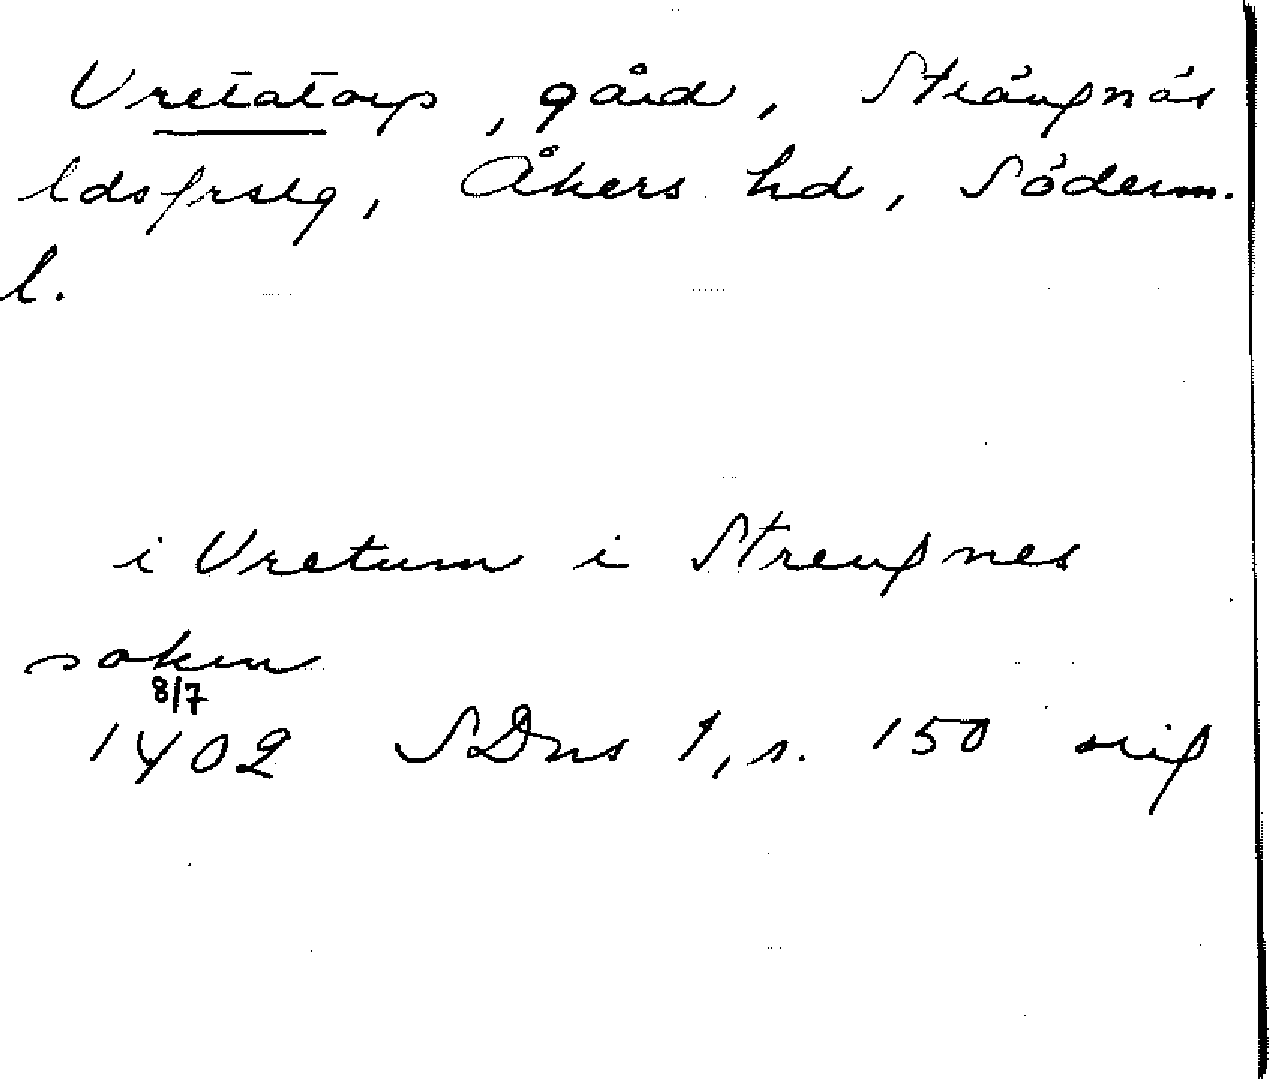 Vretatorp, gård, Strängnäs
ldsfrslg, Åkers hd, Söderm.
l.
i Vretum i Strengnes
soken
8/7
1402 SDns 1, s. 150 orig